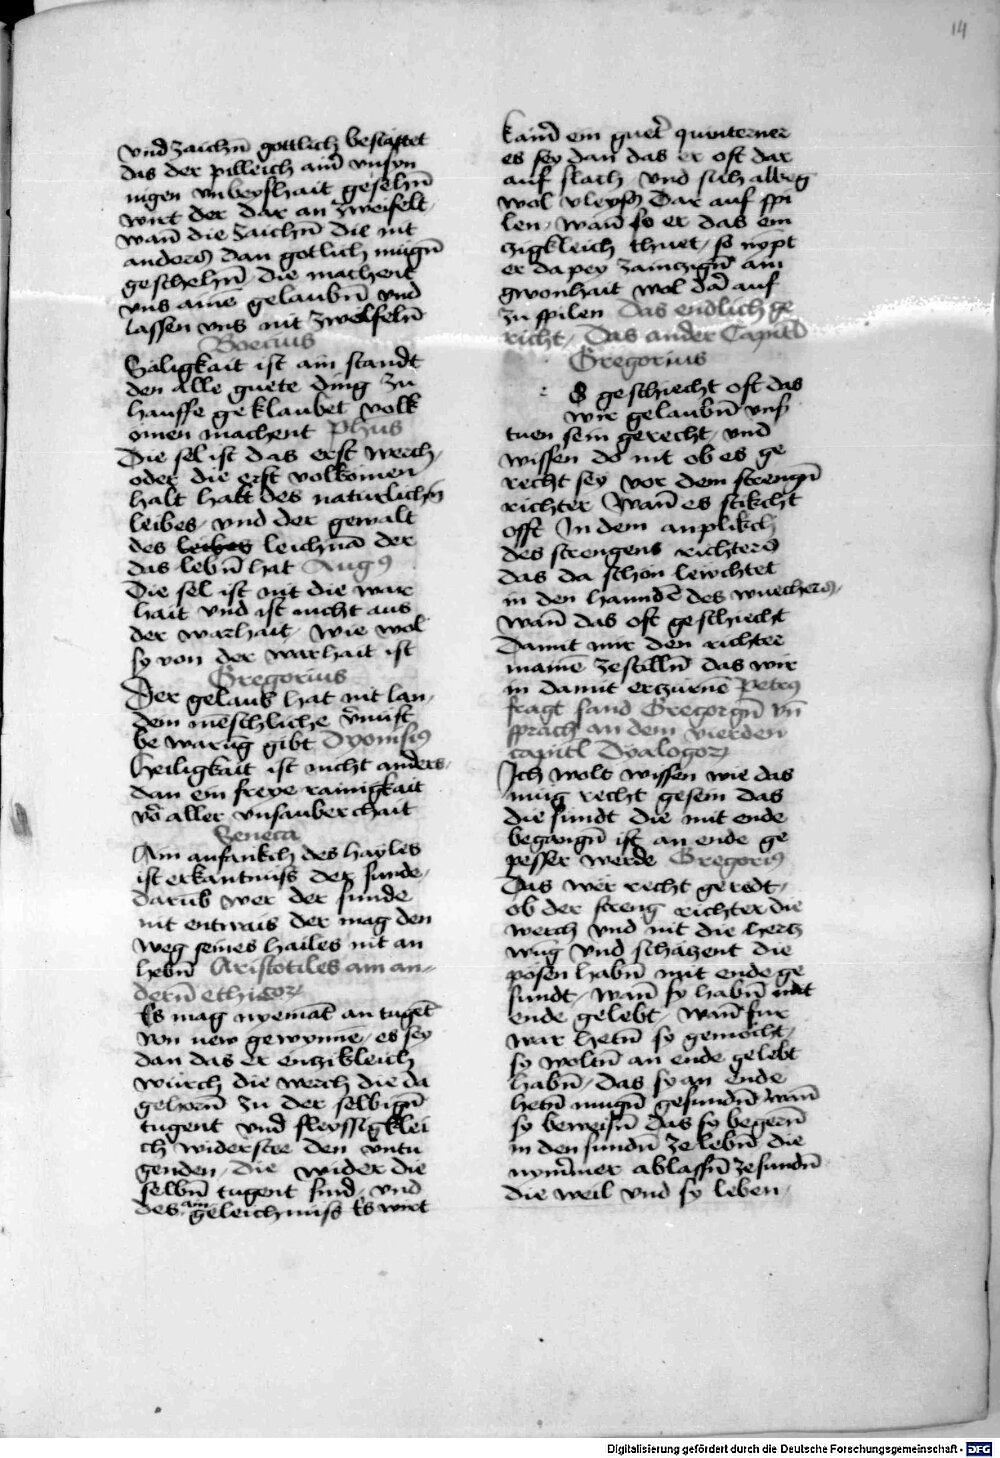 14
vnd zaichn̄ gottlich bestättet
das der pilleich ain̄ vnsyn
nigen vnbeyshait gesehn̄
wirt der dar an zweifelt
wan̄ die zaichn̄ die nit
anders dan gotlich mügn̄
geschehn̄ die machent
vns aine gelaubn̄ vnd
lassen vns nit zweifeln̄
Boecius
Säligkait ist ain standt
den alle guete ding zu
hauffe geklaubet volk
omen machent Phus
Die sel ist das erst werch,
oder die erst volkomen
halt halt des naturlichn̄
leibes, vnd der gewalt
des leibes leichnā der
das lebn̄ hat Augꝰ
Die sel ist nit die war
hait vnd ist nicht aus
der warhait, wie wol
sy von der warhait ist
Gregorius
Der gelaub hat nit lan,
dem mēschliche v̄nuft
be warūg gibt Dyonisiꝰ
Heiligkait ist nicht anders,
dan ein freye rainigkait
vō aller vnsauberchait
Seneca
Am anfankch des hayles
ist erkantnuss der sunde,
darūb wer der sunde
nit entwais der mag den
weg seines hailes nit an
hebn̄ Aristotiles am an=
dern̄ ethicoꝝ
Es mag nyemāt an tugēt
von new gewynnē, es sey
dan das er enczikleich
würch die werch die da
gehorn̄ zu der selbign̄
tugent vnd fleyssigklei
ch widerstre den vntu
genden, die wider die
selbn̄ tugent sind, vnd
des ain geleichnuss Es wirt
kain̄ ein guet̄ quinterner
es sey dan das er oft dar
auf slach vnd sich alweg
wol vleyss dar auf spi
len, wan̄ so er das ein
czigkleich thuet, so nypt
er dapey zaincign̄ ain
gwonhait wol dā auf
zu spilen Das endlich ge
richt, Das ander Capitl
Gregorius
Es geschiecht oft das
wir gelaubn̄ vns
tuen sein gerecht, vnd
wissen do nit ob es ge
recht sey vor dem strengn̄
richter Wan̄ es stikcht
offt In dem anplikch
des strengens richters
das da schon lewchtet
in den hanndē des wuechers,
wan̄ das oft geschiecht
Damit mir den richter
mainē zestilln̄ das wir
in damit erczürnē Petrꝰ
fragt sand Gregorgn̄ vn̄
sprach an dem vierden
capitl Dyalogoꝝ
Ich wolt wissen wie das
müg recht gesein das
die sundt die mit ende
begangn̄ ist an ende ge
pesser werde Gregoriꝰ
Das wer recht geredt,
ob der streng richter die
werch vnd nit die hertz
wūg vnd schäczent die
pösen habn̄ mit ende ge
sundt, wan̄ sy habn̄ mit
ende gelebt, wan̄ fur
war hetn̄ sy gemocht,
sy woltn̄ an ende gelebt
habn̄, das sy an ende
hetn̄ mugn̄ gesundn̄ wan̄
sy beweisn̄ das sy begern̄
in den sundn̄ ze lebn̄ die
nym̄mer ablassn̄ zesundn̄
die weil vnd sy leben,
Digitalisierung gefördert durch die Deutsche Forschungsgemeinschaft - DFG